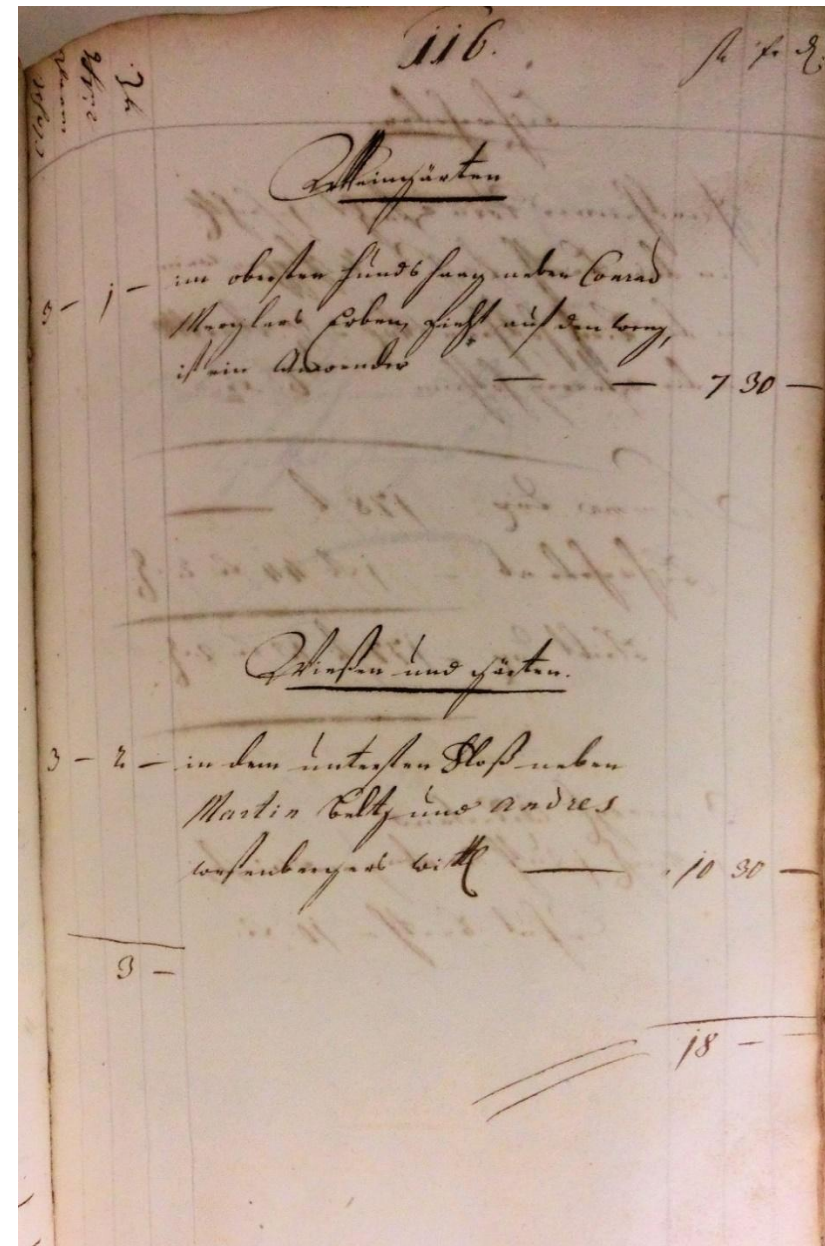 116.
fl xr ₰
Weingärten
3 - 1 - im obersten hundshaag neben Conrad
Merglers Erben, zieht auf den weeg,
ist ein Anwender — — 7 30 —
Wießen und gärten.
3 - 2 - in dem untersten Floß neben
Martin Beltz und Andres
wesenbergers witt — 10 30 —
3 -
18 -